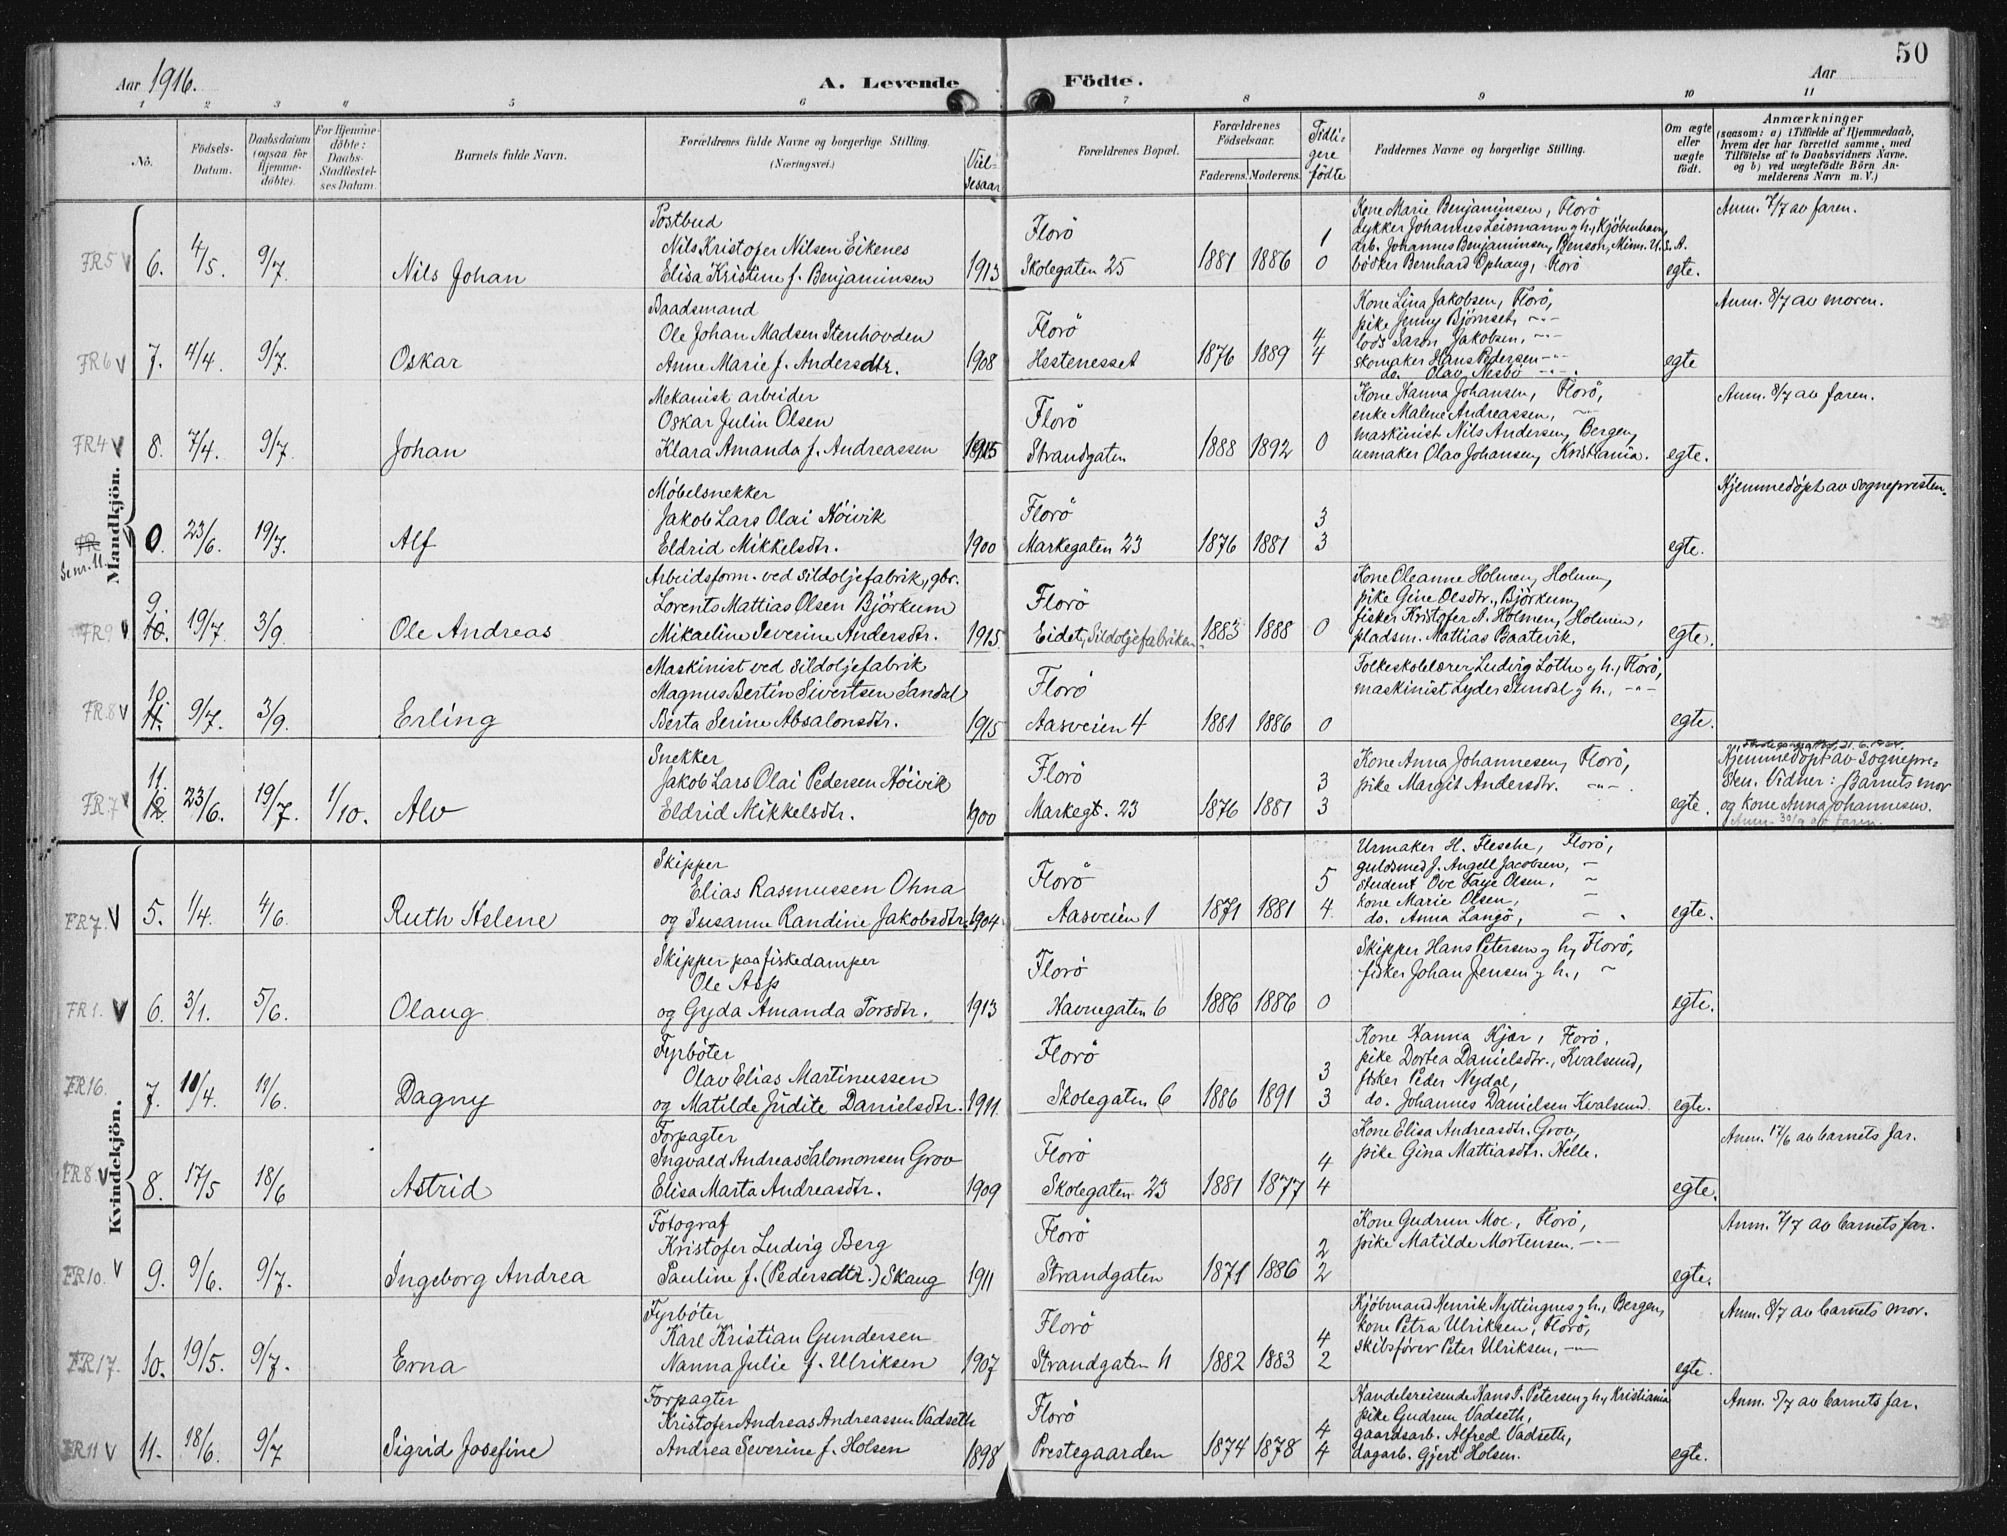 50
Aar 1916.
A. Levende Födte.
Aar
1 2 3 4 5 6 7 8 9 10 11
No.
Födsels-Datum.
Daabsdatum (ogsaa for Hjemme-döbte).
For Hjemme-döbte: Daabs-Stadfæstel-ses Datum.
Barnets fulde Navn.
Forældrenes fulde Navne og borgerlige Stilling.
(Næringsvei.)
Viel-sesaar
Forældrenes Bopæl.
Forældrenes Födselsaar.
Faderens. Moderens.
Tidli-gere fødte
Faddernes Navne og borgerlige Stilling.
Om ægte eller uægte födt.
Anmærkninger
(saasom: a) i Tilfælde af Hjemmedaab,
hvem der har forrettet samme, med
Tilföielse af to Daabsvidners Navne,
og b) ved uægtefödte Börn An-
melderens Navn m. V.)
Mandkjön.
FR5 V 6. 4/5. 9/7. Nils Johan
Postbud
Nils Kristofer Nilsen Eikenes
Elisa Kristine f. Benjaminsen 1913
Florö
Skolegaten 25 1881 1886 1 0
Kone Marie Benjaminsen, Florö
dykker Johannes Leismann g h., Kjöbenhavn,
arb. Johannes Benjaminsen, Benson, Minn. U.S.A.
bödker Bernhard Ophaug, Florö
egte.
Anm. 7/7 av faren.
FR6 V 7. 4/4. 9/7. Oskar
Baadsmand
Ole Johan Madsen Stenhovden
Anne Marie f. Andersdtr. 1908
Florö
Hestenesset 1876 1889 4 4
Kone Lina Jakobsen, Florö,
pike Jenny Björnset, -"-
lods Saron Jakobsen, -"-
skomaker Hans Pedersen -"-
do. Olav Nesbö -"-.
egte
Anm. 8/7 av moren.
FR4 V 8. 7/4. 9/7. Johan
Mekanisk arbeider
Oskar Julin Olsen
Klara Amanda f. Andreassen 1915
Florö
Strandgaten 1888 1892 0
Kone Hanna Johansen, Florö,
enke Malene Andreassen, -"-
maskinist Nils Andersen, Bergen,
urmaker Olav Johansen, Kristiania.
egte.
Anm. 8/7 av faren.
FR
Se nr. 11.
0. 23/6. 19/7. Alf
Møbelsnekker
Jakob Lars Olai Höivik
Eldrid Mikkelsdtr. 1900
Florö
Markegaten 23 1876 1881 3 3
egte.
Hjemmedöpt av sognepresten.
FR9 V 9. 10. 19/7. 3/9. Ole Andreas
Arbeidsform. ved sildoljefabrik, gbr.
Lorents Mattias Olsen Björkum
Mikaeline Severine Andersdtr. 1915
Florö
Eidet, Sildoljefabriken 1883 1888 0
Kone Oleanne Holmen, Holmen,
pike Gine Olsdtr., Björkum,
fisker Kristofer A. Holmen, Holmen,
pladsm. Mattias Baatevik.
egte.
FR.8 V 10. 11. 9/7. 3/9. Erling
Maskinist ved sildoljefabrik
Magnus Bertin Sivertsen Sandal
Berta Serine Absalonsdtr. 1915
Florö
Aasveien 4 1881 1886 0
Folkeskolelærer Ludvig Lothe g h., Florö,
maskinist Lyder Sundal g h., -"-
egte.
FR.7 V 11. 12. 23/6. 19/7. 1/10. Alv
Snekker
Jakob Lars Olai Pedersen Höivik
Eldrid Mikkelsdtr. 1900
Florö
Markegt. 23 1876 1881 3 3
Kone Anna Johannesen, Florö,
pike Margit Andersdtr. -"-.
egte.
Hjemmedöpt av Sognepre-
sten. Vidner: Barnets mor
og kone Anna Johannesen.
Anm. 30/9 av faren.
Kvindekjön.
FR7. V 5. 1/4. 4/6. Ruth Helene
Skipper
Elias Rasmussen Ohna
og Susanne Randine Jakobsdtr. 1904
Florö
Aasveien 1 1871 1881 5 4.
Urmaker H. Flesche, Florö,
guldsmed J. Angell Jacobsen, -
student Ove Faye Olsen, -
kone Marie Olsen, -
do. Anna Langö, - .
egte.
FR1. V 6. 3/1. 5/6. Olaug
Skipper paa fiskedamper
Ole Asp
og Gyda Amanda Torsdtr. 1913
Florö
Havnegaten 6 1886 1886 0
Skipper Hans Petersen g h., Florö,
fisker Johan Jensen g h., -
egte.
FR16. 7. 10/4. 11/6. Dagny
Fyrböter
Olav Elias Martinussen
og Matilde Judite Danielsdtr. 1911
Florö
Skolegaten 6 1886 1891 3 3
Kone Hanna Kjær, Florö,
pike Dortea Danielsdtr., Kvalsund,
fisker Peder Nydal,
do. Johannes Danielsen Kvalsund.
egte.
FR8. V 8. 17/5 18/6 Astrid
Forpagter
Ingvald Andreas Salomonsen Grov
Elisa Marta Andreasdtr. 1909
Florö
Skolegaten 23 1881 1877 4 4
Kone Elisa Andreasdtr. Grov,
pike Gina Mattiasdtr. Helle.
egte.
Anm. 17/6 av barnets far.
FR10. V 9. 9/6. 9/7. Ingeborg Andrea
Fotograf
Kristofer Ludvig Berg
Pauline f. (Pedersdtr.) Skaug 1911
Florö
Strandgaten 1871 1886 2 2
Kone Gudrun Moe, Florö,
pike Matilde Mortensen. -"-
egte.
Anm. 7/7 av barnets far.
FR17. 10. 19/5. 9/7. Erna
Fyrböter
Karl Kristian Gundersen
Nanna Julie f. Ulriksen 1907
Florö
Strandgaten 11 1882 1883 4 2
Kjöbmand Henrik Nyttingnes g h., Bergen,
kone Petra Ulriksen, Florö,
skibsförer Peter Ulriksen, -"-
egte.
Anm. 8/7 av barnets mor.
FR11 V 11. 18/6. 9/7 Sigrid Josefine
Forpagter
Kristofer Andreas Andreassen Vadseth
Andrea Severine f. Holsen 1898
Florö
Prestegaarden 1874 1878 4 4
Handelsreisende Hans J. Petersen g h., Kristiania
pike Gudrun Vadseth,
gaardsarb. Alfred Vadseth,
dagarb. Gjert Holsen.
egte.
Anm. 5/7 av barnets far.